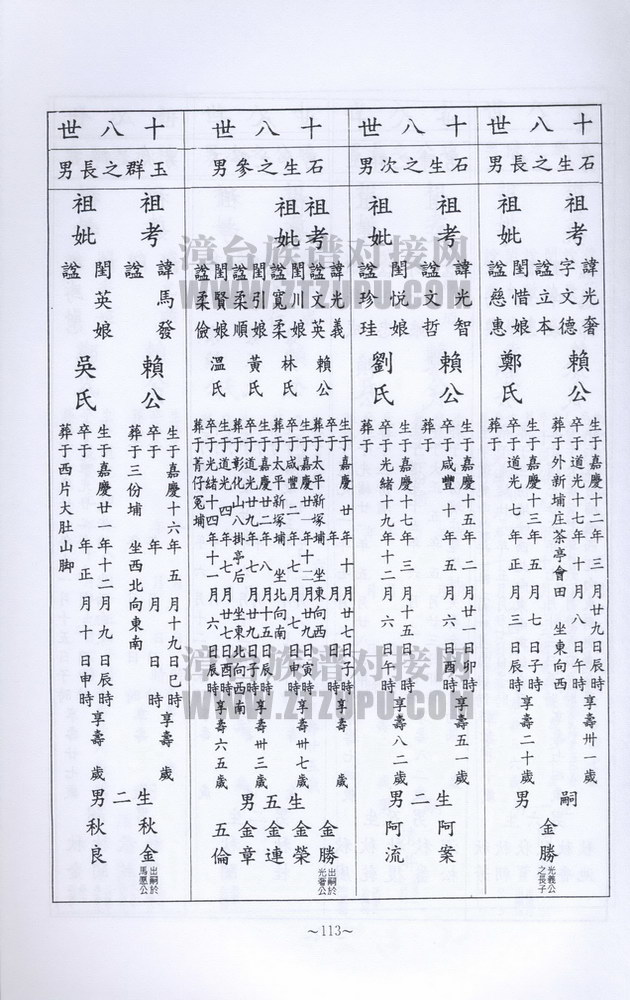 十八世
石生之長男
祖考 諱光奢 字文德 諡立本 賴公
生于嘉慶十二年三月廿九日辰時
卒于道光十七年十月八日午時 享壽卅一歲
葬于外新埔庄茶亭會田 坐東向西
祖妣 閨惜娘 諡慈惠 鄭氏
生于嘉慶十三年五月七日子時
卒于道光七年正月三日辰時 享壽二十歲
葬于
嗣男 金勝 光義公之長子
十八世
石生之次男
祖考 諱光智 諡文哲 賴公
生于嘉慶十五年二月廿一日卯時
卒于咸豐十年四月六日酉時 享壽五一歲
葬于
祖妣 閨悦娘 諡珍珪 劉氏
生于嘉慶十七年三月十五日辰時
卒于光緒十九年十二月六日午時 享壽八二歲
葬于
生二男 阿案 阿流
十八世
石生之參男
祖考 諱光義 諡文英 賴公
生于嘉慶廿年十月廿七日子時
卒于 年 月 日 時 享壽 歲
葬于太平新塚埔 坐東向西
祖妣 閨川娘 諡寬柔 林氏
生于嘉慶廿一年十二月廿九日寅時
卒于咸豐二年七月七日申時 享壽卅七歲
葬于太平新塚埔 坐北向南
閨引娘 諡柔順 黃氏
生于嘉慶廿二年八月十五日辰時
卒于道光廿九年七月廿九日子時 享壽卅三歲
葬于彰化山八掛亭后 坐東北向西南
閨賢娘 諡柔儉 溫氏
生于道光四年七月廿七日酉時
卒于光緒十四年十一月六日辰時 享壽六五歲
葬于菁仔冤埔
生五男 金勝 出嗣於光奢公 金榮 金連 金章 五倫
十八世
玉群之長男
祖考 諱馬發 諡 賴公
生于嘉慶十六年五月十九日巳時
卒于 年 月 日 時 享壽 歲
葬于三份埔 坐西北向東南
祖妣 閨英娘 諡 吳氏
生于嘉慶廿一年十二月九日辰時
卒于 年正月十日申時 享壽 歲
葬于西片大肚山脚
生二男 秋金 出嗣於馬愿公 秋良
~113~
漳台族谱对接网
WWW.ZTZUPU.COM
漳台族谱对接网
WWW.ZTZUPU.COM